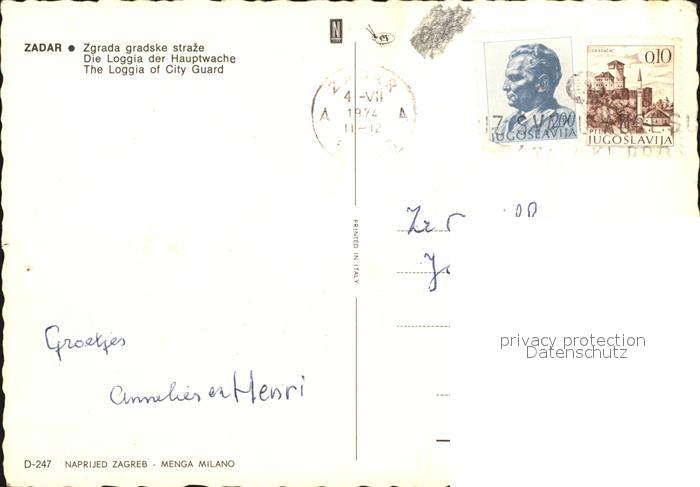 ZADAR ● Zgrada gradske straže
Die Loggia der Hauptwache
The Loggia of City Guard
N
ZADAR
4 -VII
A 1974 A
11-12
2.00
JUGOSLAVIJA
GRADAČAC
0.10
JUGOSLAVIJA
PRINTED IN ITALY
privacy protection
Datenschutz
Groetjes
Annelies en Henri
D-247 NAPRIJED ZAGREB - MENGA MILANO